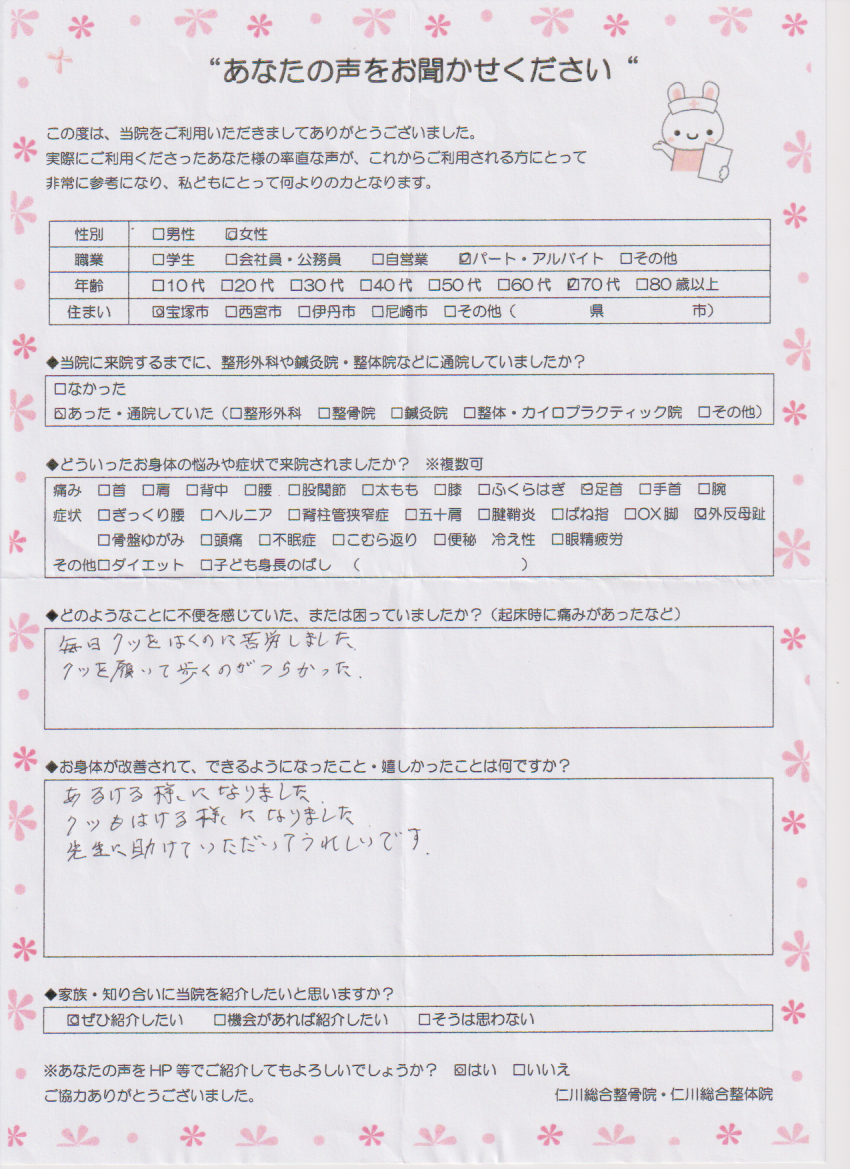 “あなたの声をお聞かせください“
この度は、当院をご利用いただきましてありがとうございました。
実際にご利用くださったあなた様の率直な声が、これからご利用される方にとって
非常に参考になり、私どもにとって何よりの力となります。
性別 □男性 ☑女性
職業 □学生 □会社員・公務員 □自営業 ☑パート・アルバイト □その他
年齢 □10代 □20代 □30代 □40代 □50代 □60代 ☑70代 □80歳以上
住まい ☑宝塚市 □西宮市 □伊丹市 □尼崎市 □その他（ 県 市）
◆当院に来院するまでに、整形外科や鍼灸院・整体院などに通院していましたか？
□なかった
☑あった・通院していた（□整形外科 □整骨院 □鍼灸院 □整体・カイロプラクティック院 □その他）
◆どういったお身体の悩みや症状で来院されましたか？ ※複数可
痛み □首 □肩 □背中 □腰 □股関節 □太もも □膝 □ふくらはぎ ☑足首 □手首 □腕
症状 □ぎっくり腰 □ヘルニア □脊柱管狭窄症 □五十肩 □腱鞘炎 □ばね指 □OX脚 ☑外反母趾
□骨盤ゆがみ □頭痛 □不眠症 □こむら返り □便秘 冷え性 □眼精疲労
その他□ダイエット □子ども身長のばし （ ）
◆どのようなことに不便を感じていた、または困っていましたか？（起床時に痛みがあったなど）
毎日クツをはくのに苦労しました、
クツを履いて歩くのがつらかった.
◆お身体が改善されて、できるようになったこと・嬉しかったことは何ですか？
あるける様になりました、
クツもはける様になりました
先生に助けていただいてうれしいです.
◆家族・知り合いに当院を紹介したいと思いますか？
☑ぜひ紹介したい □機会があれば紹介したい □そうは思わない
※あなたの声をHP等でご紹介してもよろしいでしょうか？ ☑はい □いいえ
ご協力ありがとうございました。 仁川総合整骨院・仁川総合整体院